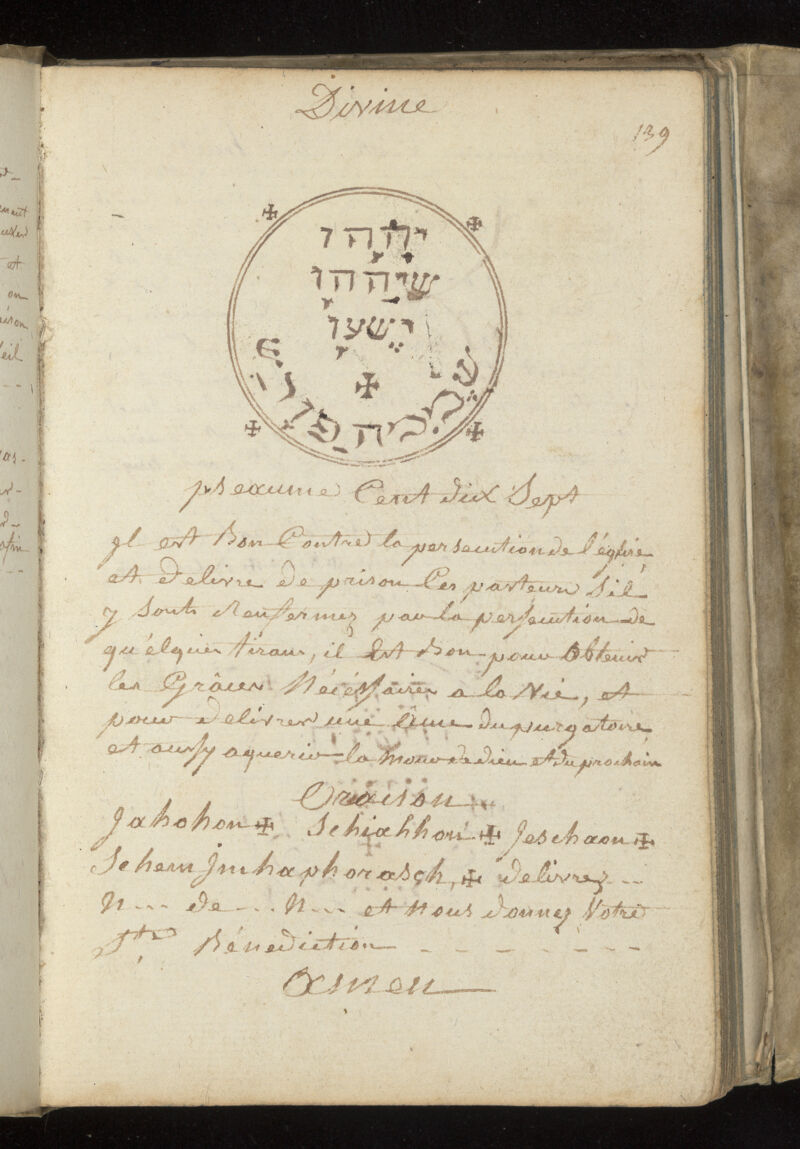 Divine
139
יההו
שיההו
ישעו
pseaume Cent dix Sept
jl est Bon Contre la persecution de l'église,
et delivre de prison les pasteurs S'il
y sont Renfermez par la persecution de
quélques tirans, il Est Bon pour Obtenir
les Grâces Nécéssaires a la Vie, et
pour delivrer une âme du purgatoire
et aussy aquerir la Mour de dieu et du prochain
Oraison
Jahohon ✠ Schiahhon ✠ Jeschaon ✠
Schem Jmhaphorasch, ✠ delivrez --
N--- de --- N--- et Nous donnez Votre
Ste Bénediction - - - - - - -
Amen